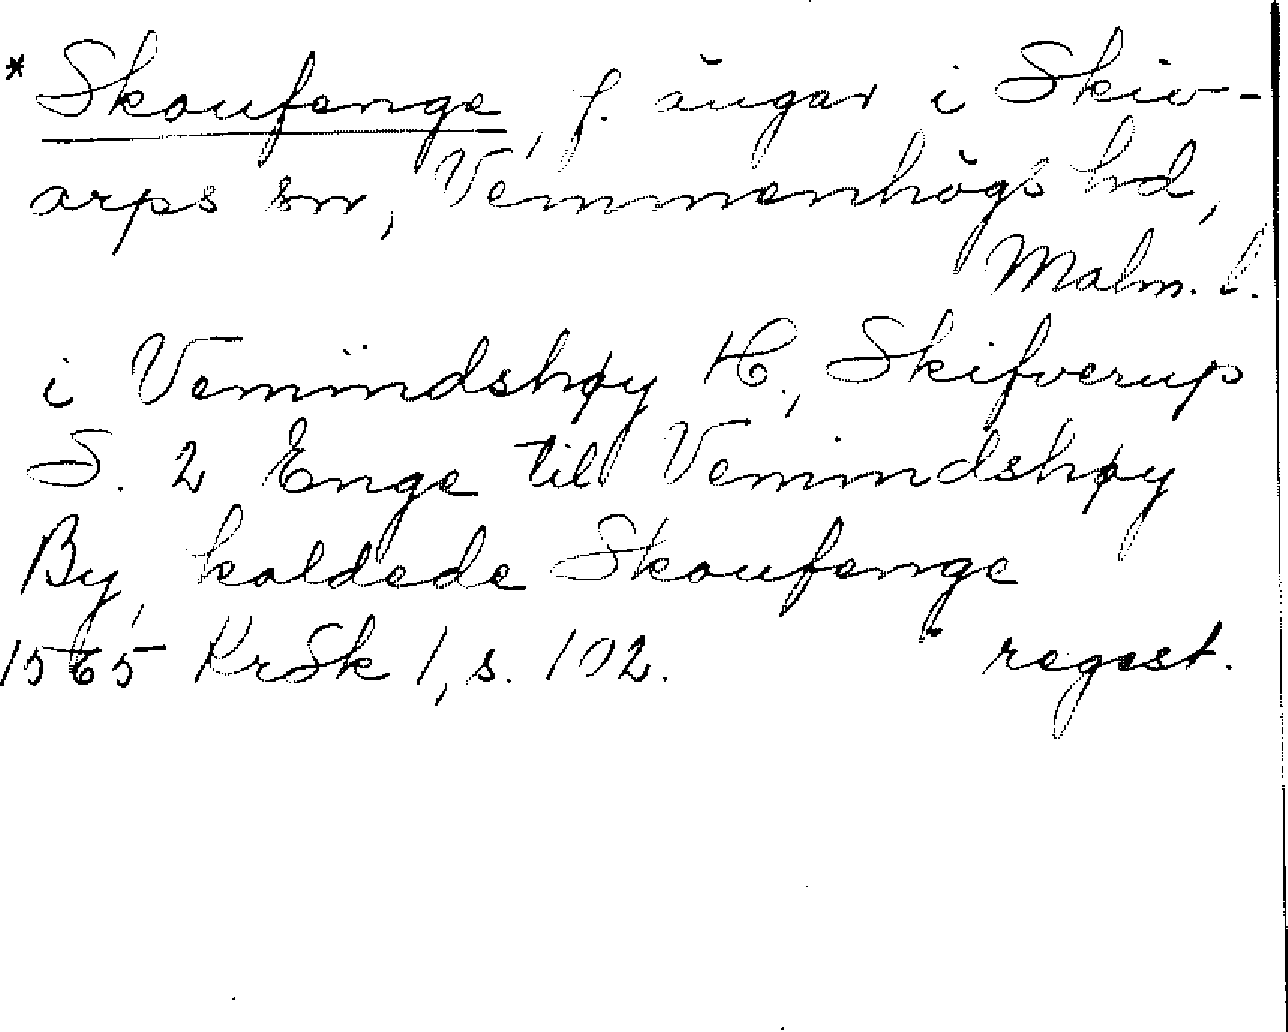 * Skoufenge, f. ängar i Skiv-
arps sn, Vemmenhögs hd,
Malm. l.
i Vemindshøy H., Skifverup
S. 2 Enge til Vemindshøy
By, kaldede Skoufenge
1565 KrSk 1, s. 102. regest.